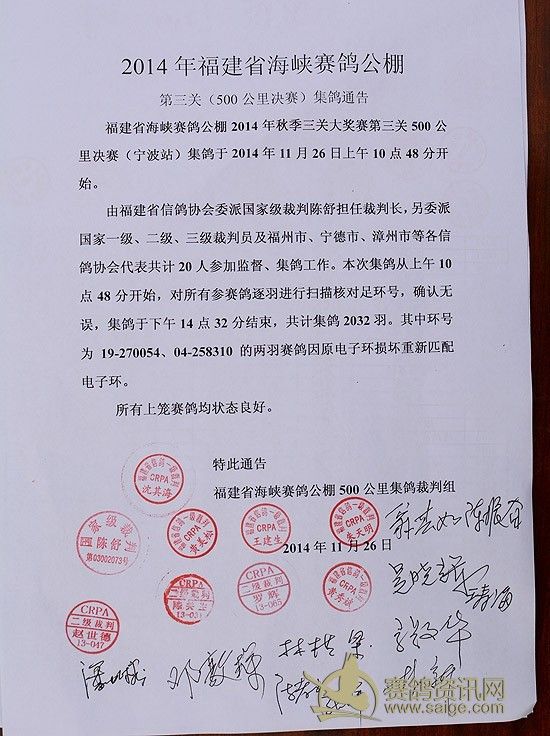 2014 年福建省海峡赛鸽公棚
第三关（500 公里决赛）集鸽通告
福建省海峡赛鸽公棚 2014 年秋季三关大奖赛第三关 500 公
里决赛（宁波站）集鸽于 2014 年 11 月 26 日上午 10 点 48 分开
始。
由福建省信鸽协会委派国家级裁判陈舒担任裁判长，另委派
国家一级、二级、三级裁判员及福州市、宁德市、漳州市等各信
鸽协会代表共计 20 人参加监督、集鸽工作。本次集鸽从上午 10
点 48 分开始，对所有参赛鸽逐羽进行扫描核对足环号，确认无
误，集鸽于下午 14 点 32 分结束，共计集鸽 2032 羽。其中环号
为 19-270054、04-258310 的两羽赛鸽因原电子环损坏重新匹配
电子环。
所有上笼赛鸽均状态良好。
特此通告
福建省海峡赛鸽公棚 500 公里集鸽裁判组
2014 年 11 月 26 日
福建省信鸽一级裁判
CRPA
沈其海
国家级裁判
陈舒
第03002073号
CRPA
CRPA
王建生
CRPA
CRPA
二级裁判
CRPA
二级裁判
罗辉
13-065
CRPA
CRPA
二级裁判
赵世德
13-047
赛鸽资讯网
www.saige.com